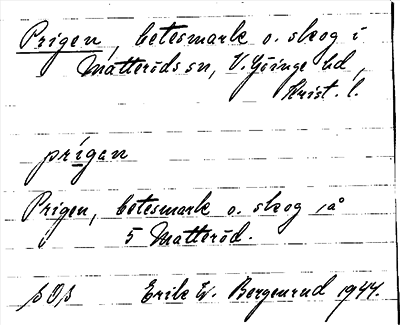 Prigen, betesmark o. skog i
Matteröds sn, V. Göinge hd,
Krist. l.
prígan
Prigen, betesmark o. skog, å
5 Matteröd.
SOS Erik W. Bergenrud 1944.